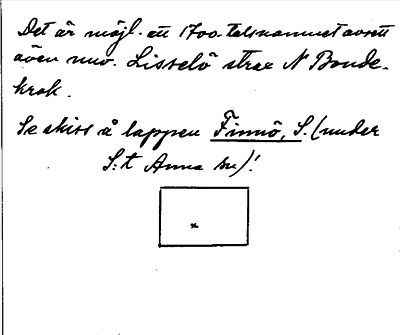 Det är möjl. att 1700-talsnamnet avsett
även nuv. Lisselö strax N Bonde-
krok.
Se skiss å lappen Finnö, S. (under
S:t Anna sn)!